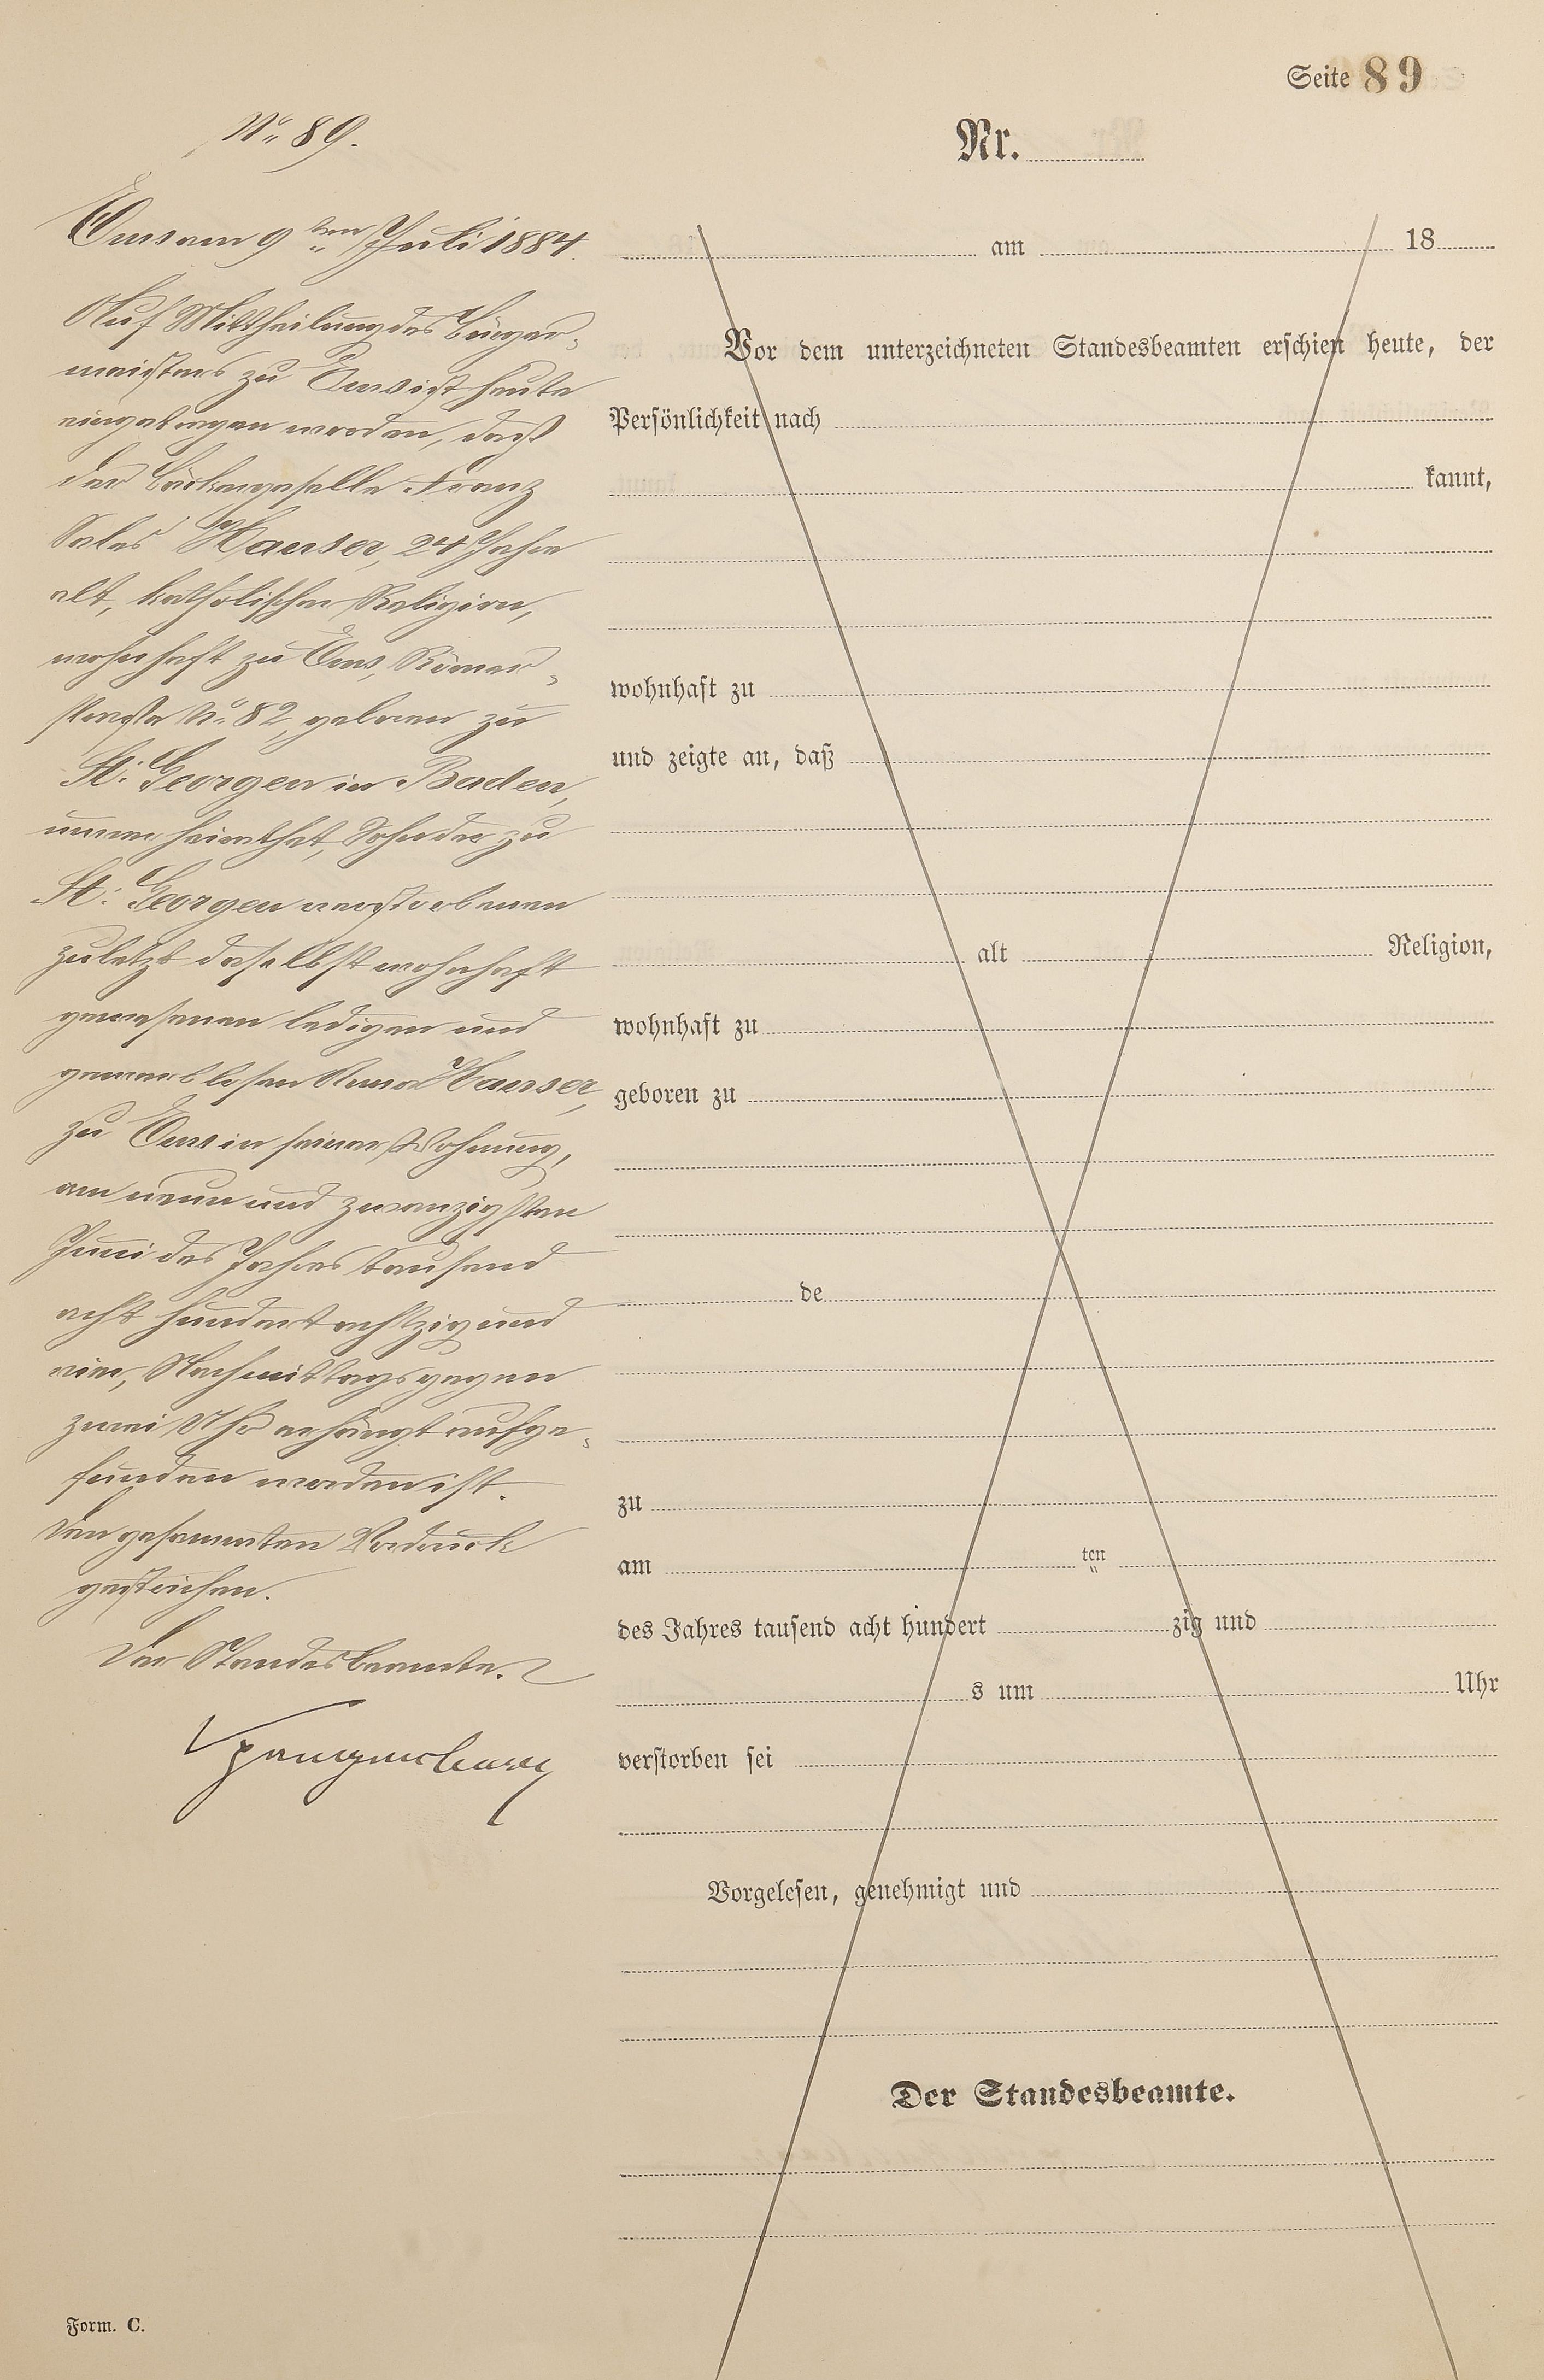 Seite 89
No 89.
Ems am 9ten Juli 1884.
Auf Mittheilung des Bürger-
meisters zu Ems ist heute
eingetragen worden, daß
der Bäckergeselle Franz
Sales Hauser, 24 Jahre
alt, katholischer Religion,
wohnhaft zu Ems, Römer-
straße No 82, geboren zu
St. Georgen in Baden,
unverheirathet, Sohn der zu
St. Georgen verstorbenen
zuletzt daselbst wohnhaft
gewesenen ledigen und
gewerblosen Hauser,
zu Ems in seiner Wohnung,
am neun und zwanzigsten
Juni des Jahres tausend
acht hundert achtzig und
vier, Nachmittags gegen
zwei Uhr erhängt aufge-
funden worden ist.
Den gesammten Vordruck
gestrichen.
Der Standesbeamte.
Nr.
am 18
Vor dem unterzeichneten Standesbeamten erschien heute, der
Persönlichkeit nach
kannt,
wohnhaft zu
und zeigte an, daß
alt Religion,
wohnhaft zu
geboren zu
de
zu
am ten
des Jahres tausend acht hundert zig und
s um Uhr
verstorben sei
Vorgelesen, genehmigt und
Der Standesbeamte.
Form. C.